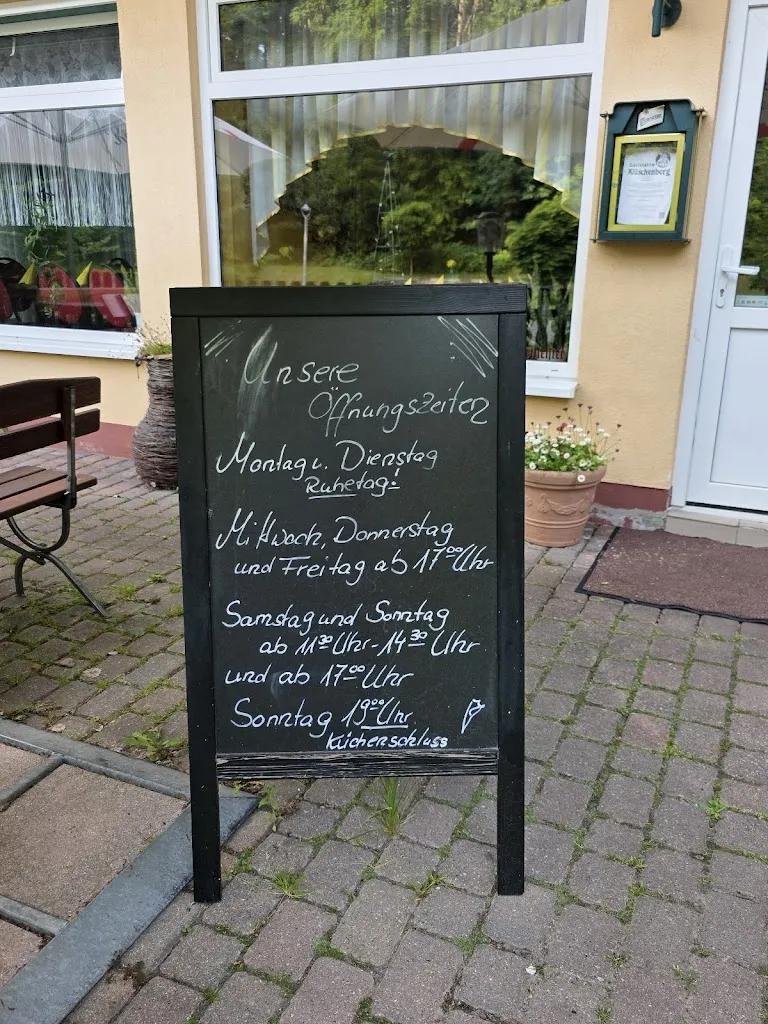 Unsere
Öffnungszeiten
Montag u. Dienstag
Ruhetag!
Mittwoch, Donnerstag
und Freitag ab 17⁰⁰ Uhr
Samstag und Sonntag
ab 11³⁰ Uhr - 14³⁰ Uhr
und ab 17⁰⁰ Uhr
Sonntag 19⁰⁰ Uhr
Küchenschluss
Klüschenberg